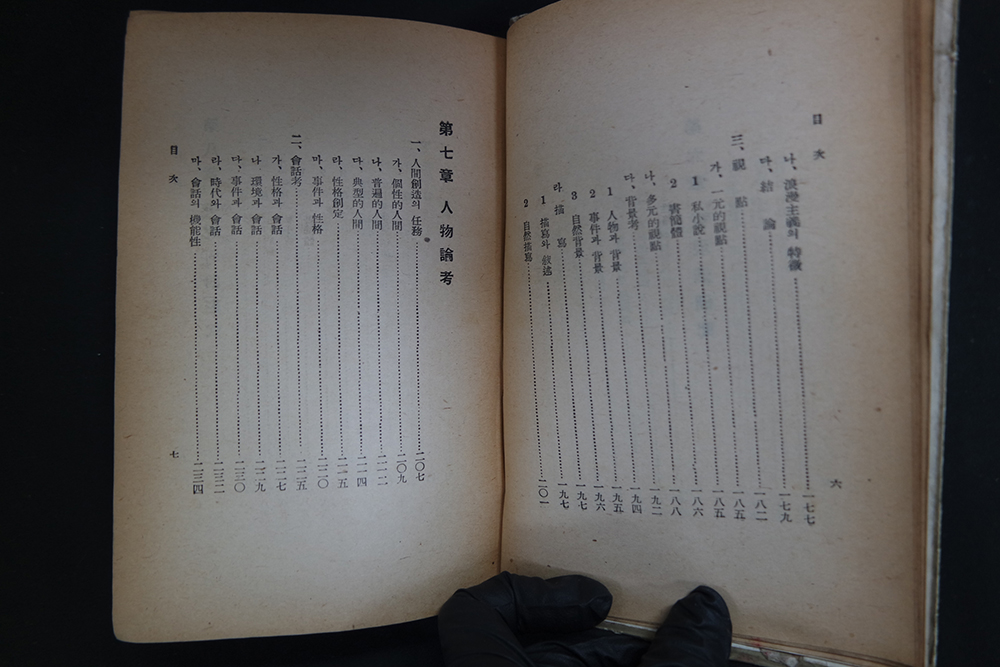 目次
나、浪漫主義의 特徵……一七七
다、結論……一七九
三、視點……一八二
가、一元的視點……一八五
1 私小說……一八五
2 書簡體……一八六
나、多元的視點……一八八
다、背景考……一九二
1 人物과 背景……一九四
2 事件과 背景……一九五
3 自然背景……一九六
라、描寫……一九七
1 描寫와 敍述……一九七
2 自然描寫……二〇一
六
第七章 人物論考
一、人間創造의 任務……二〇七
가、個性的人間……二〇九
나、普遍的人間……二一二
다、典型的人間……二一四
라、性格創定……二一五
마、事件과 性格……二二〇
二、會話考……二二五
가、性格과 會話……二二七
나、環境과 會話……二二九
다、事件과 會話……二三〇
라、時代와 會話……二三二
마、會話의 機能性……二三四
目次
七